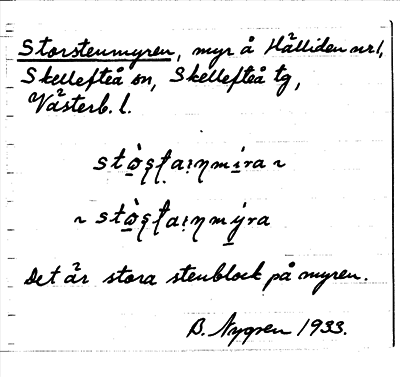 Storstenmyren, myr å Hälliden nr 1,
Skellefteå sn, Skellefteå tg,
Västerb. l.
stò̱s̨ʈaiŋmi̱ra ~
~ stò̱s̨ʈaiŋmy̱ra
Det är stora stenblock på myren.
B. Nygren 1933.